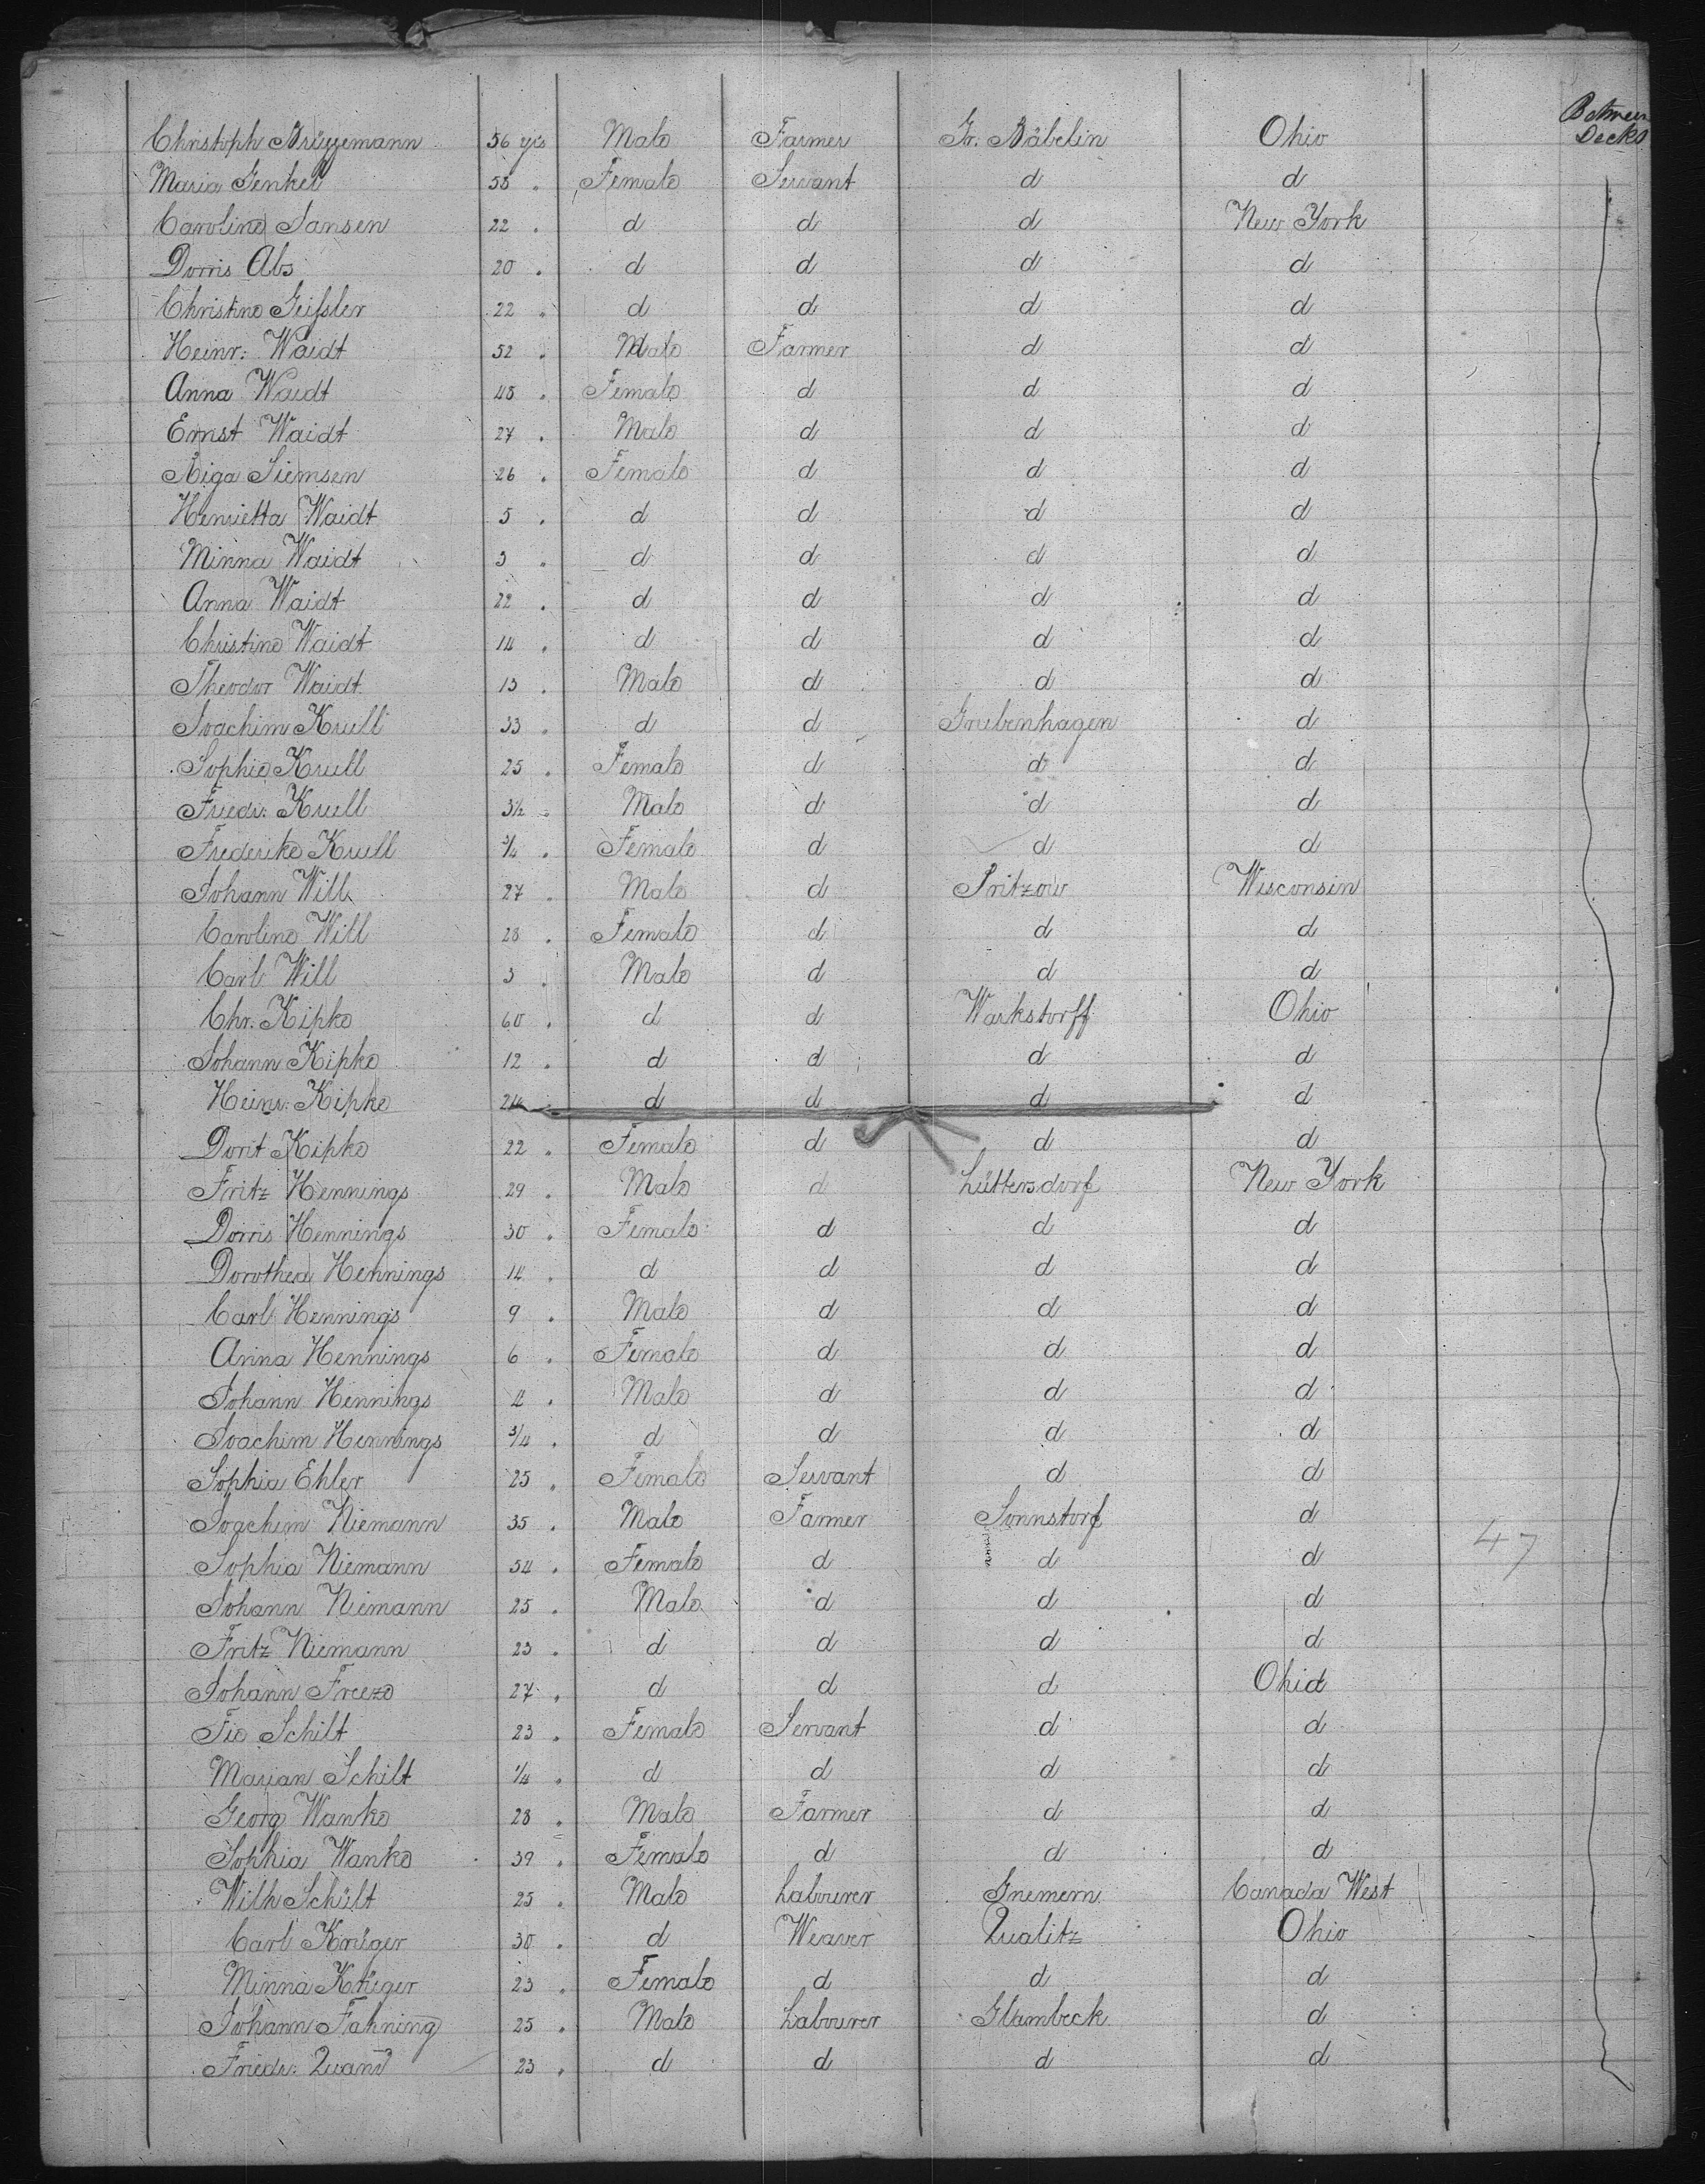 Between
Christoph Brüggemann 56 yrs Male Farmer Gr. Bäbelin Ohio Decks
Maria Henkel 58 " Female Servant d d
Caroline Jansen 22 " d d d New York
Dorris Abs 20 " d d d d
Christine Geissler 22 " d d d d
Heinr: Waidt 52 " Male Farmer d d
Anna Waidt 48 " Female d d d
Ernst Waidt 27 " Male d d d
Siemsen 26 " Female d d d
Henrietta Waidt 5 " d d d d
Minna Waidt 3 " d d d d
Anna Waidt 22 " d d d d
Christine Waidt 14 " d d d d
Theodor Waidt 13 " Male d d d
Joachim Krull 33 " d d Grubenhagen d
Sophie Krull 25 " Female d d d
Friedr: Krull 3½ " Male d d d
Frederike Krull ¾ " Female d d d
Johann Will 27 " Male d Pritzow Wisconsin
Caroline Will 28 " Female d d d
Carl Will 3 " Male d d d
Chr. Kipke 60 " d d Warkstorff Ohio
Johann Kipke 12 " d d d d
Heinr: Kipke 24 " d d d d
Dorit Kipke 22 " Female d d d
Fritz Hennings 29 " Male d Lüttersdorf New York
Dorris Hennings 30 " Female d d d
Dorothea Hennings 14 " d d d d
Carl Hennings 9 " Male d d d
Anna Hennings 6 " Female d d d
Johann Hennings 4 " Male d d d
Joachim Hennings ¾ " d d d d
Sophia Ehler 25 " Female Servant d d
Joachim Niemann 35 " Male Farmer Sonnstorf d
Sophia Niemann 54 " Female d d d 47
Johann Niemann 25 " Male d d d
Fritz Niemann 23 " d d d d
Johann Freeze 27 " d d d Ohio
Fie Schilt 23 " Female Servant d d
Marian Schilt ¼ " d d d d
Georg Wanke 28 " Male Farmer d d
Sophia Wanke 39 " Female d d d
Wilh Schült 25 " Male Labourer Gnemern Canada West
Carl Krüger 30 " d Weaver Qualitz Ohio
Minna Krüger 23 " Female d d d
Johann Fahning 25 " Male Labourer Glambeck d
Friedr: Quand 23 " d d d d